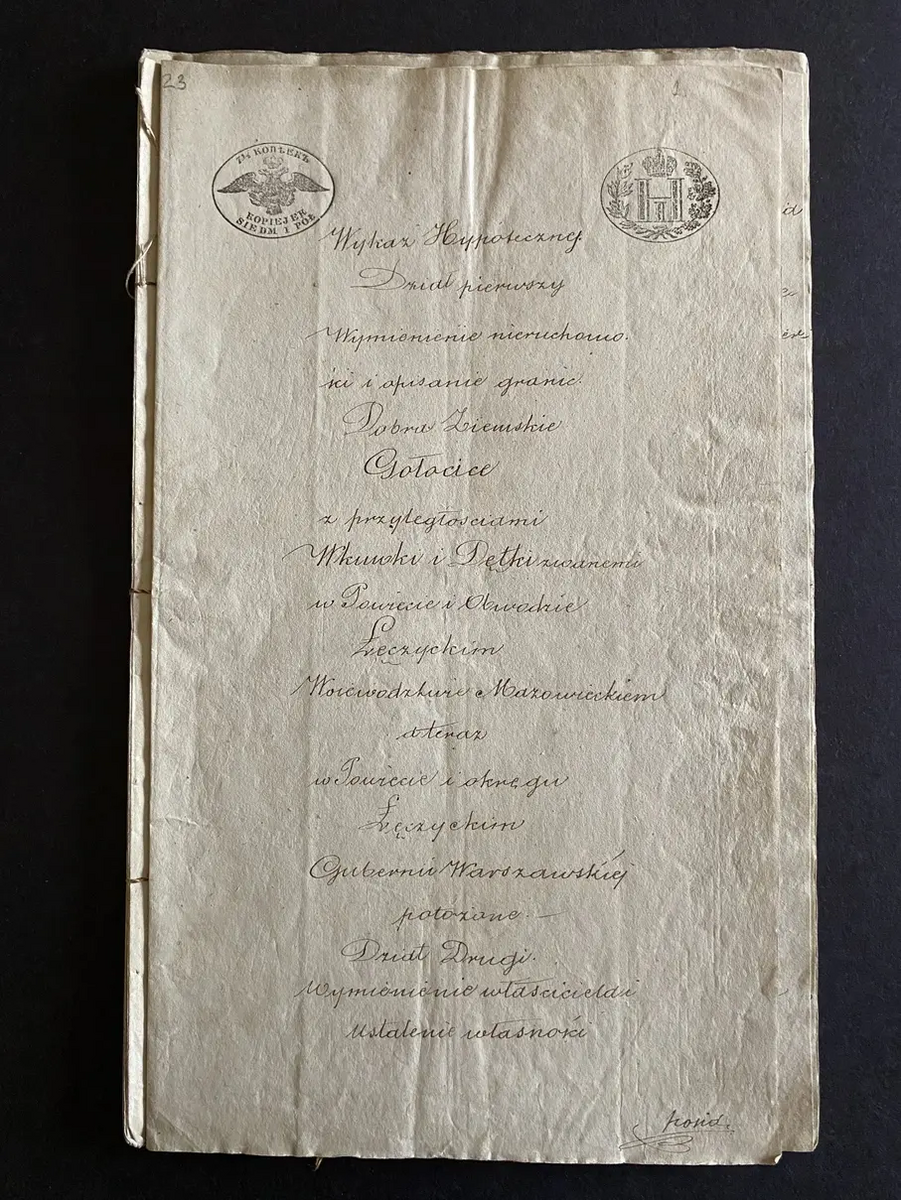 23
1
7½ КОПѢЕКЪ
KOPIEJEK
SIEDM I PÓŁ
Н
Wykaz Hypoteczney
Dział pierwszy
Wymienienie nieruchomo
ści i opisanie granic.
Dobra Ziemskie
Gołocice
z przyległosciami
Wkuwki i Dętki zwanemi
w Powiecie i Obwodzie
Łęczyckim
Woiewodztwie Mazowieckiem
a teraz
w Powiecie i okręgu
Łęczyckim
Gubernii Warszawskiéj
położone. —
Dział Drugi.
Wymienienie właściciela i
Ustalenie własności